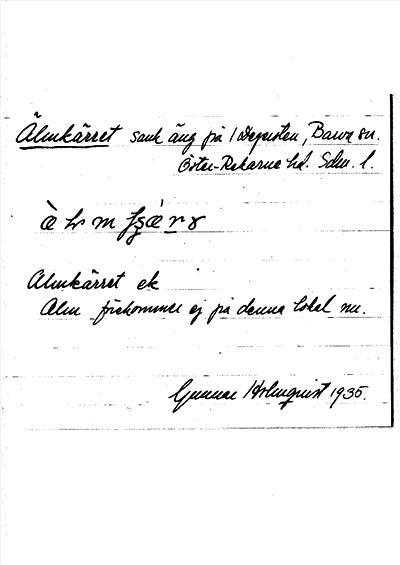 Älmkärret sank äng på 1 Depisten, Barva sn.
Öster-Rekarne hd. Sdm. l.
Älmkärret ek
Alm förekommer ej på denna lokal nu.
Gunnar Holmquist 1935.